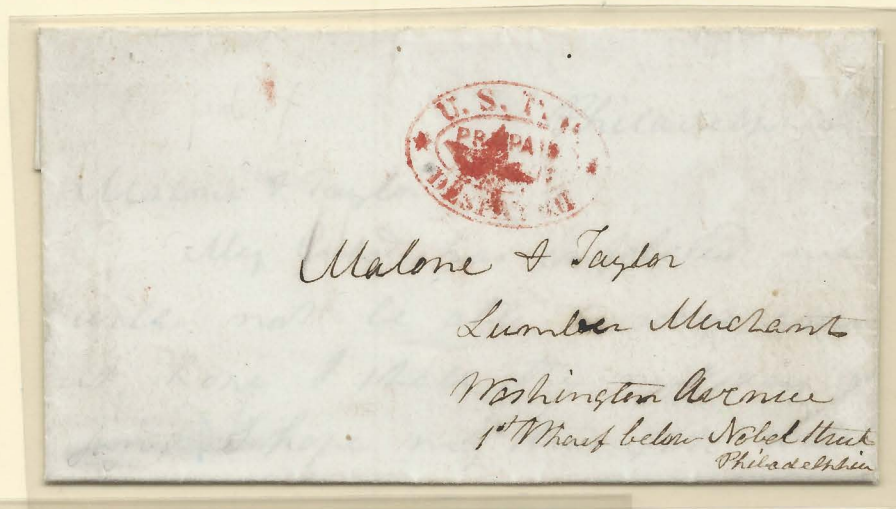 U. S.
PREPAID
DISPATCH
Malone & Taylor
Lumber Merchants
Washington Avenue
1st Wharf below Nobel Street
Philadelphia